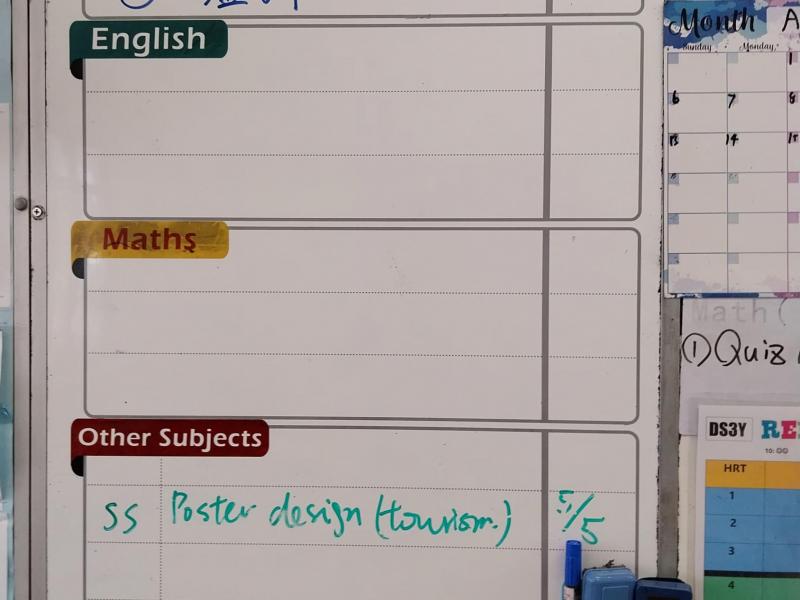 English
Maths
Other Subjects
SS Poster design (tourism.) 5/5
Month A
Sunday Monday
1
6 7 8
13 14 15
Math (
① Quiz
DS3Y RE
HRT
1
2
3
4